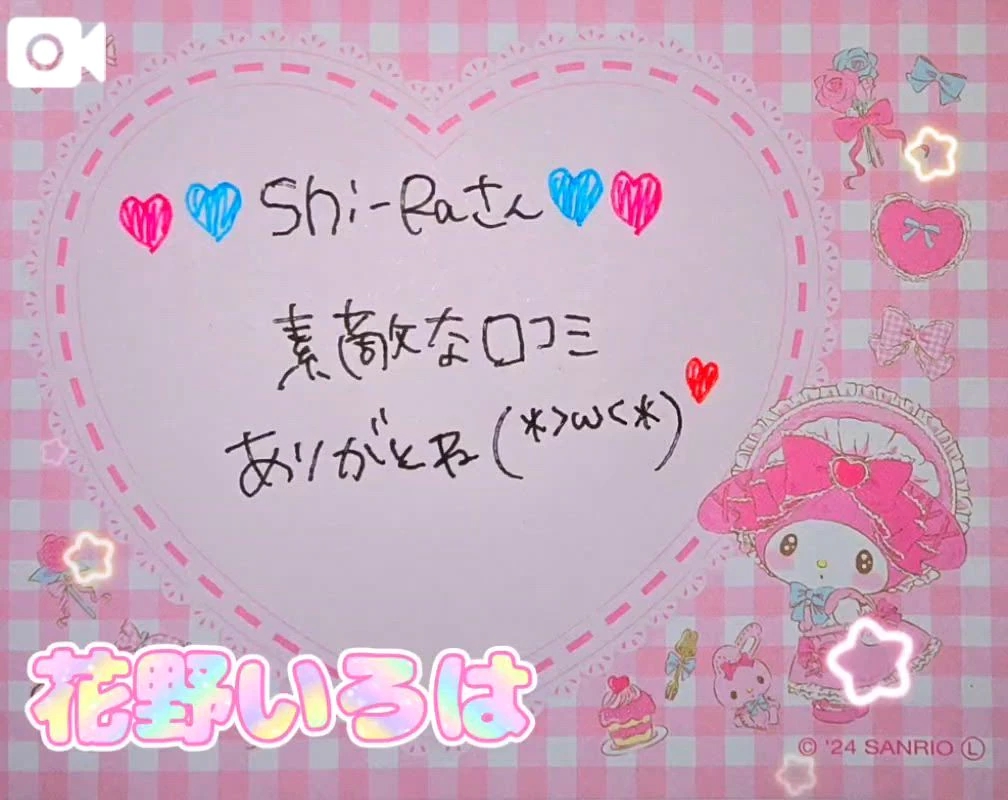 Shi-Raさん
素敵な口コミ
ありがとね(*>ω<*)
花野いろは
© '24 SANRIO Ⓛ